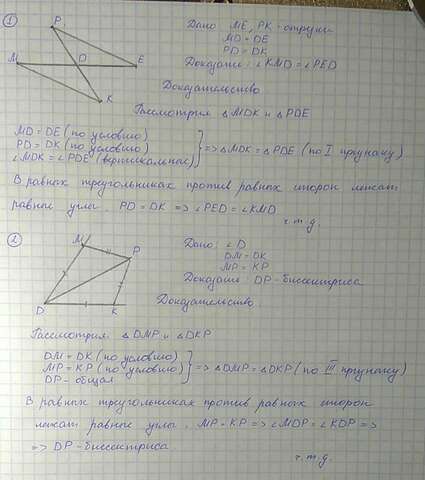 1
P
M
D
E
K
Дано: ME, PK - отрезки
MD = DE
PD = DK
Доказать: ∠KMD = ∠PED
Доказательство
Рассмотрим △MDK и △PDE
MD = DE (по условию)
PD = DK (по условию)
∠MDK = ∠PDE (вертикальные)
=> △MDK = △PDE (по I признаку)
В равных треугольниках против равных сторон лежат
равные углы. PD = DK => ∠PED = ∠KMD
ч.т.д.
2
M
P
D
K
Дано: ∠D
DM = DK
MP = KP
Доказать: DP - биссектриса
Доказательство
Рассмотрим △DMP и △DKP
DM = DK (по условию)
MP = KP (по условию)
DP - общая
=> △DMP = △DKP (по III признаку)
В равных треугольниках против равных сторон
лежат равные углы. MP = KP => ∠MDP = ∠KDP =>
=> DP - биссектриса
ч.т.д.